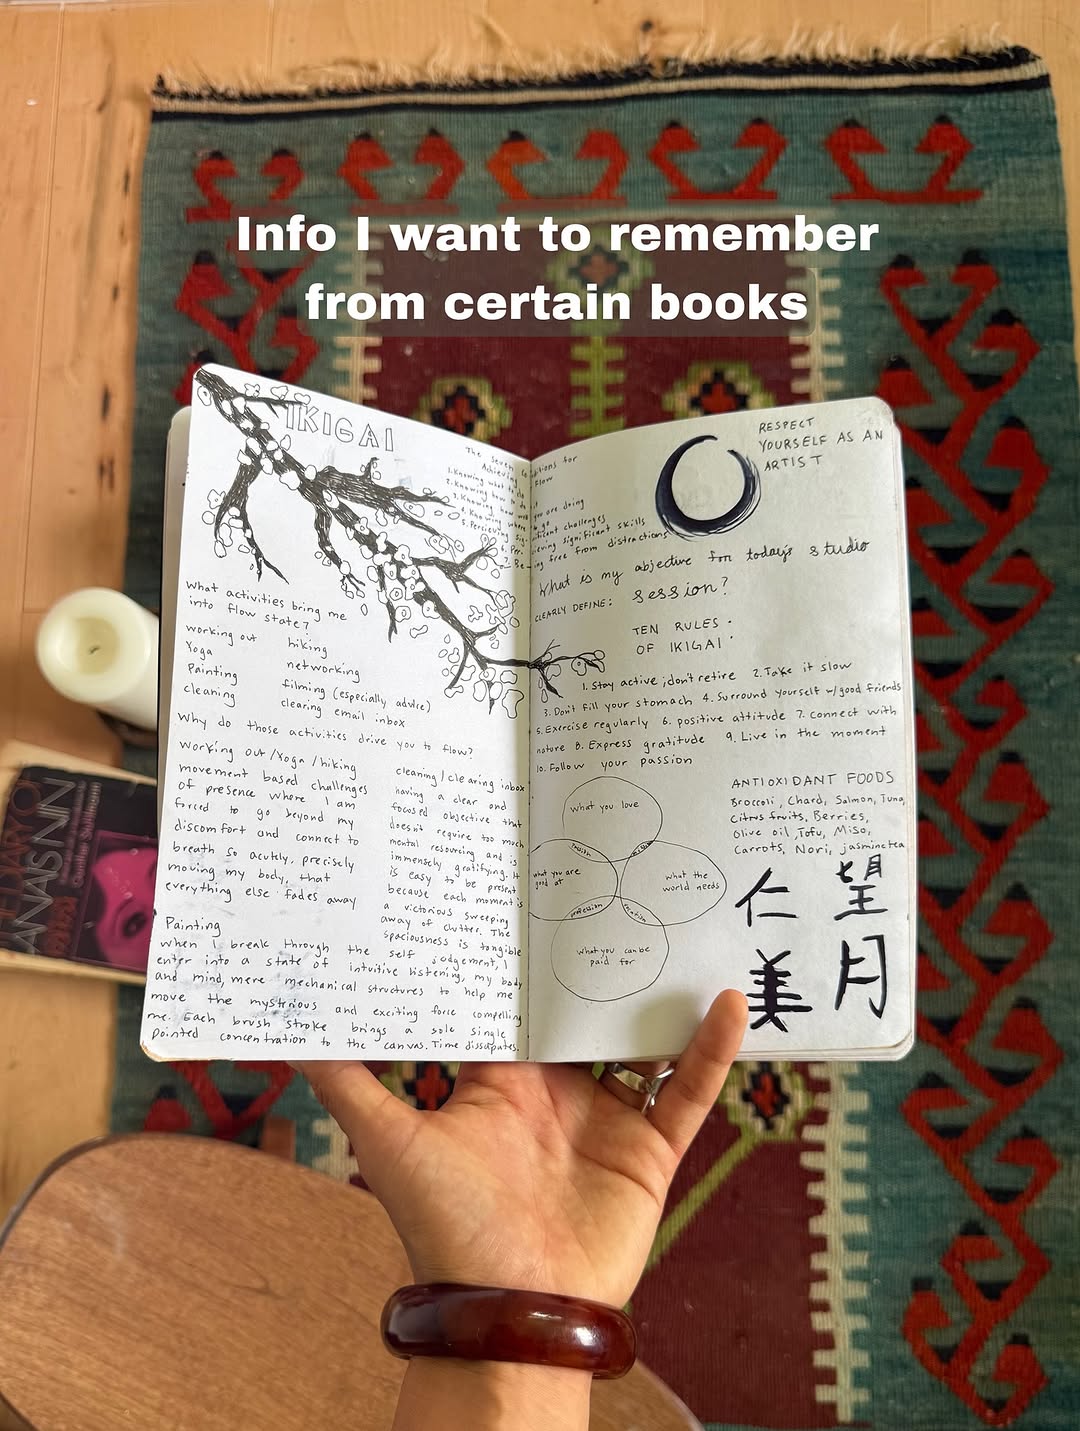 Info I want to remember
from certain books
IKIGAI
The Seven Conditions for
Achieving Flow
1. Knowing what to do
2. Knowing how to do it
3. Knowing how well you are doing
4. Knowing where to go
5. Percieving significant challenges
6. Percieving significant skills
7. Being free from distractions
what activities bring me
into flow state?
working out
Yoga
Painting
cleaning
hiking
networking
filming (especially advice)
clearing email inbox
Why do those activities drive you to flow?
Working out/Yoga/hiking
movement based challenges
of presence where I am
forced to go beyond my
discomfort and connect to
breath so acutely, precisely
moving my body, that
everything else fades away
cleaning/clearing inbox
having a clear and
focused objective that
doesn't require too much
mental resourcing and is
immensely gratifying. It
is easy to be present
because each moment is
a victorious sweeping
away of clutter. The
spaciousness is tangible
Painting
when I break through the self judgement, I
enter into a state of intuitive listening, my body
and mind, mere mechanical structures to help me
move the mysterious and exciting force compelling
me. Each brush stroke brings a sole single
pointed concentration to the canvas. Time dissapates.
RESPECT
YOURSELF AS AN
ARTIST
What is my objective for today's studio
session?
CLEARLY DEFINE:
TEN RULES
OF IKIGAI
1. Stay active; don't retire 2. Take it slow
3. Don't fill your stomach 4. Surround yourself w/good friends
5. Exercise regularly 6. positive attitude 7. connect with
nature 8. Express gratitude 9. Live in the moment
10. Follow your passion
what you love
what you are
good at
what the
world needs
what you can be
paid for
passion
mission
profession
vocation
ANTIOXIDANT FOODS
Broccoli, Chard, Salmon, Tuna,
Citrus fruits, Berries,
Olive oil, Tofu, Miso,
Carrots, Nori, jasmine tea
仁
美
望
月
ANAIS NIN